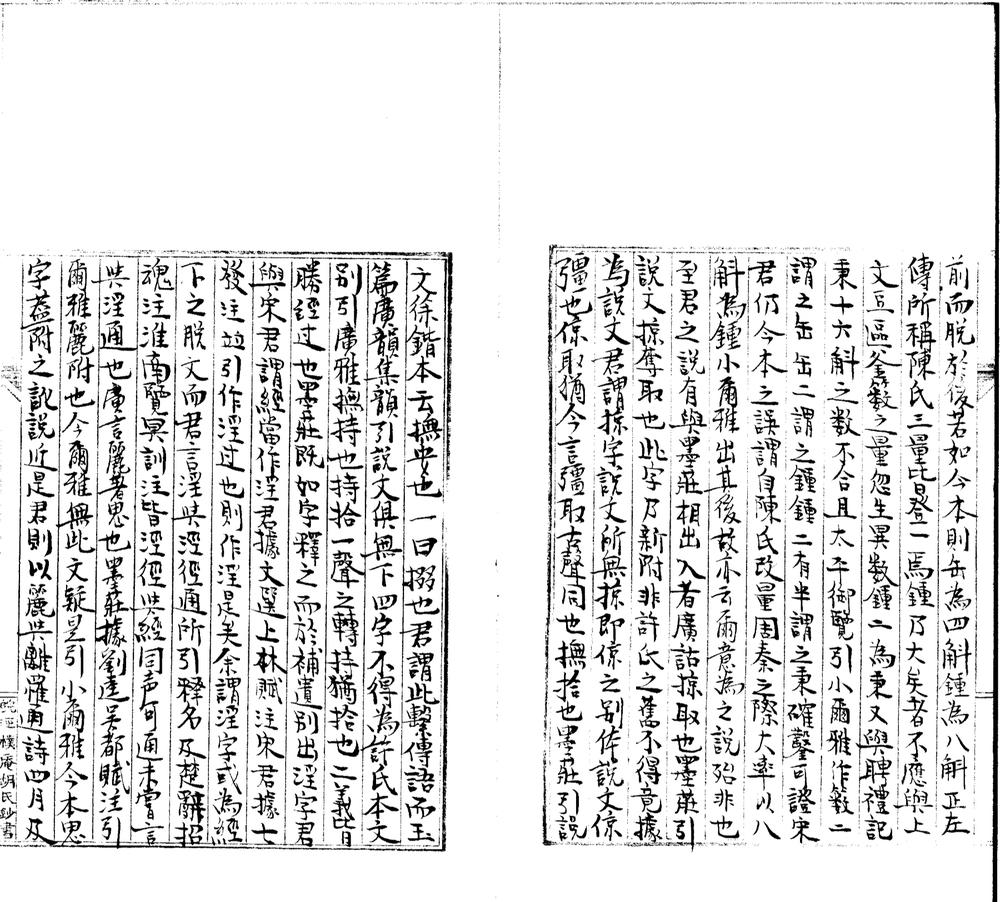 前而脱於後若如今本則缶為四斛鍾為八斛正左
傳所稱陳氏三量皆登一焉鍾乃大矣者不應與上
文豆區釜籔之量忽生異数鍾二為秉又與聘禮記
秉十六斛之数不合且太平御覽引小爾雅作籔二
謂之缶缶二謂之鍾鍾二有半謂之秉確鑿可證宋
君仍今本之誤謂自陳氏改量周秦之際大率以八
斛為鍾小爾雅出其後故亦云爾意為之說殆非也
至君之說有與墨莊相出入者廣詁掠取也墨莊引
說文掠奪取也此字乃新附非許氏之舊不得竟據
為說文君謂掠字說文所無掠即倞之別体說文倞
彊也倞取猶今言彊取古聲同也撫拾也墨莊引說
文徐鍇本云撫安也一曰掇也君謂此繫傳語而玉
篇廣韻集韻引說文俱無下四字不得為許氏本文
別引廣雅撫持也持拾一聲之轉持猶拾也二義皆
勝經过也墨莊既如字釋之而於補遺別出淫字君
與宋君謂經當作淫君據文選上林賦注宋君據七
發注並引作淫过也則作淫是矣余謂淫字或為經
下之脱文而君言淫與涇徑通所引释名及楚辭招
魂注淮南覽冥訓注皆涇徑與經同声可通未嘗言
與淫通也廣言麗著思也墨莊據劉逵吳都賦注引
爾雅麗附也今爾雅無此文疑是引小爾雅今本思
字蓋附之訛說近是君則以麗與離羅通詩四月及
樸庵胡氏鈔書